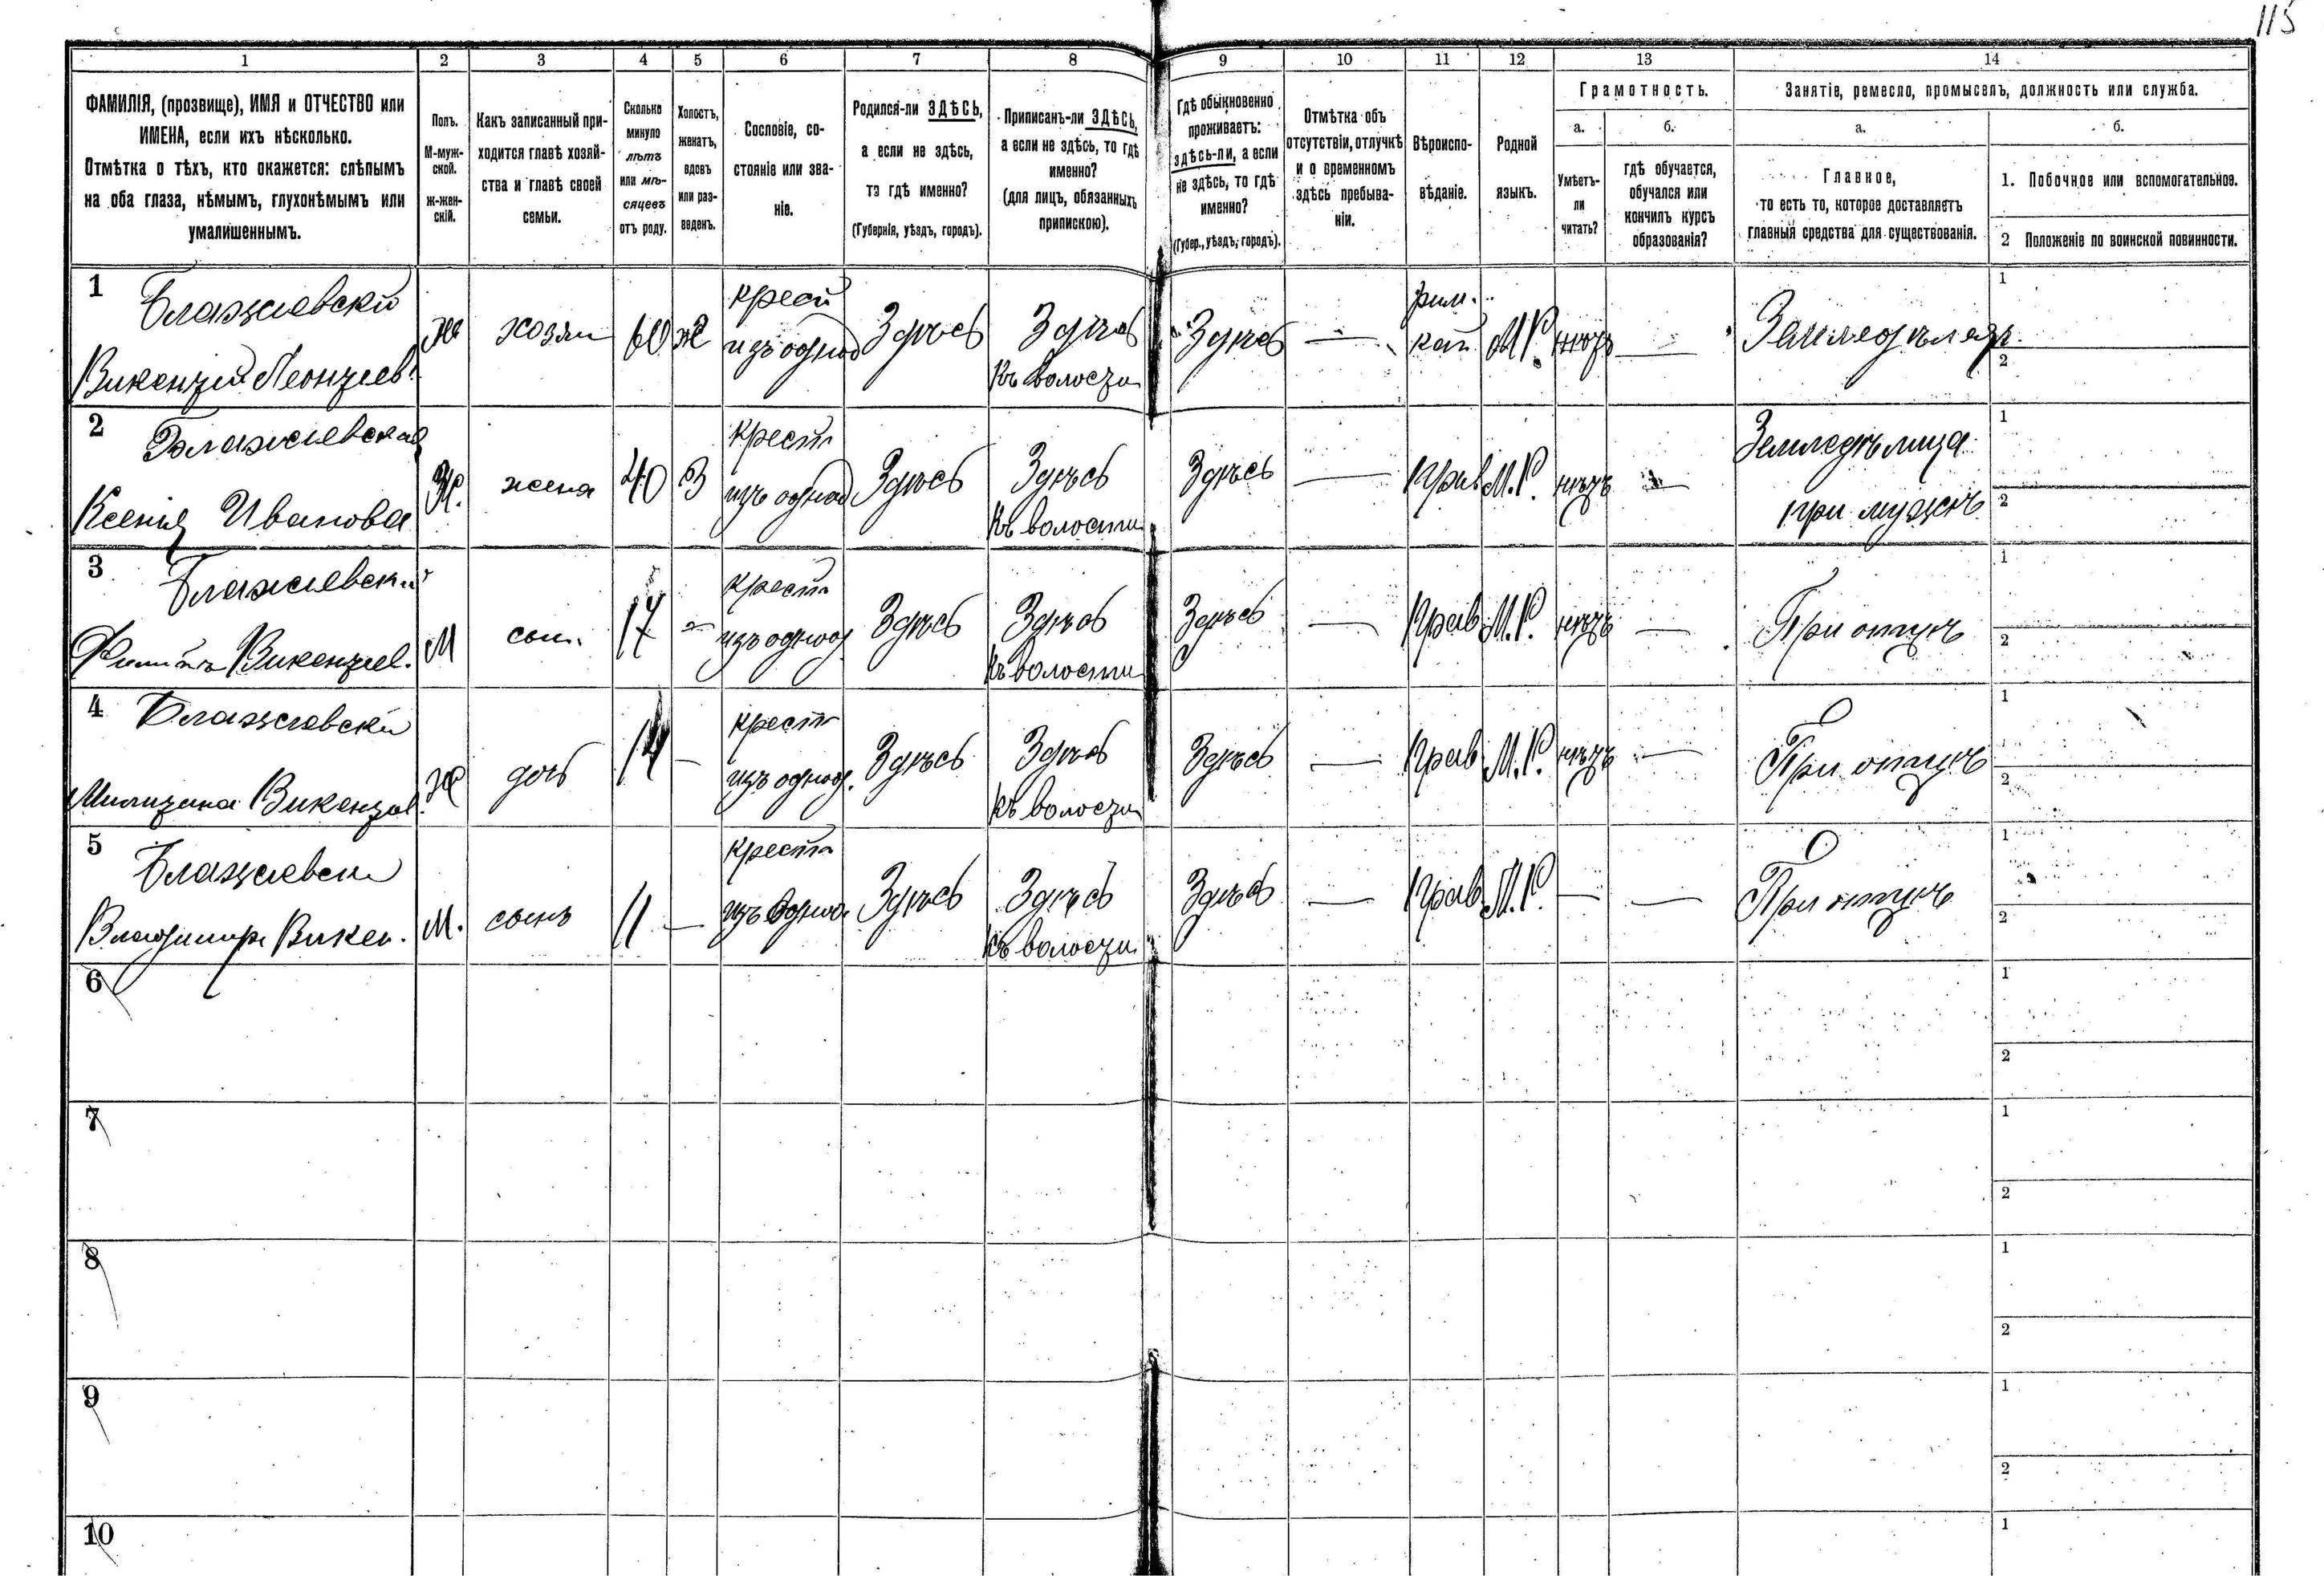 115
1 2 3 4 5 6 7 8 9 10 11 12 13 14
ФАМИЛІЯ, (прозвище), ИМЯ и ОТЧЕСТВО или
ИМЕНА, если ихъ нѣсколько.
Отмѣтка о тѣхъ, кто окажется: слѣпымъ
на оба глаза, нѣмымъ, глухонѣмымъ или
умалишеннымъ.
Полъ.
М-муж-
ской.
ж-жен-
скій.
Какъ записанный при-
ходится главѣ хозяй-
ства и главѣ своей
семьи.
Сколько
минуло
лѣтъ
или мѣ-
сяцевъ
отъ роду.
Холостъ,
женатъ,
вдовъ
или раз-
веденъ.
Сословіе, со-
стояніе или зва-
ніе.
Родился-ли ЗДѢСЬ,
а если не здѣсь,
то гдѣ именно?
(Губернія, уѣздъ, городъ).
Приписанъ-ли ЗДѢСЬ,
а если не здѣсь, то гдѣ
именно?
(для лицъ, обязанныхъ
припискою).
Гдѣ обыкновенно
проживаетъ:
здѣсь-ли, а если
не здѣсь, то гдѣ
именно?
(Губер., уѣздъ, городъ).
Отмѣтка объ
отсутствіи, отлучкѣ
и о временномъ
здѣсь пребыва-
ніи.
Вѣроиспо-
вѣданіе.
Родной
языкъ.
Грамотность.
а.
Умѣетъ-
ли
читать?
б.
гдѣ обучается,
обучался или
кончилъ курсъ
образованія?
Занятіе, ремесло, промыселъ, должность или служба.
а.
Главное,
то есть то, которое доставляетъ
главныя средства для существованія.
б.
1. Побочное или вспомогательное.
2 Положеніе по воинской повинности.
1 Блажиевскій
Викентій Леонтиев.
хозяи
60
ж
крест
изъ однод
Здѣсь
Здѣсь
къ волости
Здѣсь
—
рим.
кат
М.Р.
нѣтъ
—
Земледѣлецъ.
1
2
2 Блажиевская
Ксенія Иванова
Ж.
жена
40
З
крестъ
изъ однод
Здѣсь
Здѣсь
къ волости
Здѣсь
—
Прав
М.Р.
нѣтъ
—
Земледѣлица
при мужѣ
1
2
3 Блажиевскій
Викентиев.
М
сын.
17
—
крестъ
изъ однод
Здѣсь
Здѣсь
къ волости
Здѣсь
—
Прав
М.Р.
нѣтъ
—
При отцѣ
1
2
4 Блажиевски
Викентиев.
Ж
дочь
14
—
крестъ
изъ однод.
Здѣсь
Здѣсь
къ волости
Здѣсь
—
Прав
М.Р.
нѣтъ
—
При отцѣ
1
2
5 Блажиевски
Владимиръ Викен.
М.
сынъ
11
—
крестъ
изъ одно.
Здѣсь
Здѣсь
къ волости
Здѣсь
—
Прав
М.Р.
—
—
При отцѣ
1
2
6
1
2
7
1
2
8
1
2
9
1
2
10
1